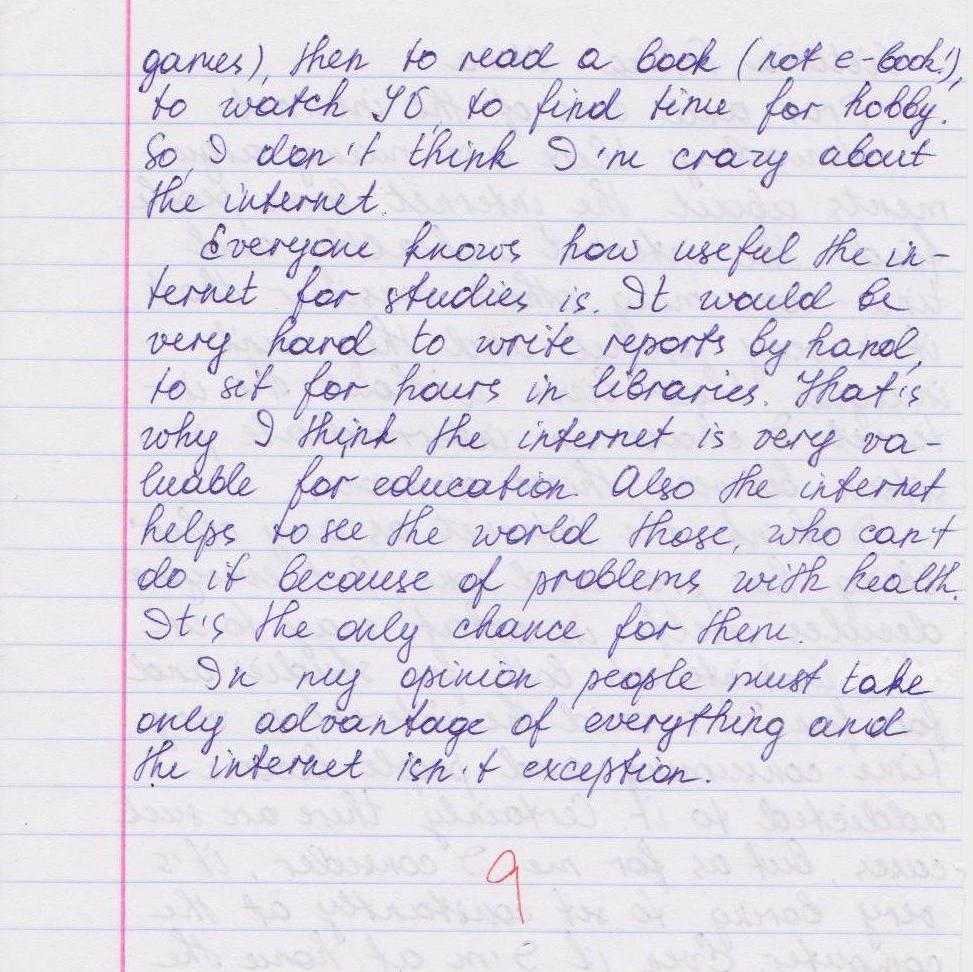 games), then to read a book (not e-book!),
to watch to find time for hobby.
So, I don't think I'm crazy about
the internet.
Everyone knows how useful the in-
ternet for studies is. It would be
very hard to write reports by hand,
to sit for hours in libraries. That's
why I think the internet is very va-
luable for education. Also the internet
helps to see the world those, who can't
do it because of problems with health.
It's the only chance for them.
In my opinion people must take
only advantage of everything and
the internet isn't exception.
9